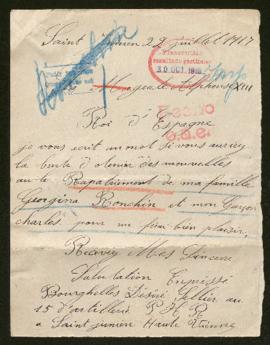 Saint Junien 22 juillet 1917
30 OCT. 1918
Alphonse XIII
Roi d'Espagne
je vous ecrit un mot si vous auriez
la bonté d'otenir des nouvelles
sur le Rapatriement de ma famille
Georgina Ronchin et mon Garçon
charles pour un fimi bien plaisir.
Recevez Mes Sincere
Salutation Empressé
Bourghelles Désiré Sellier au
15 d'artillerie P. H. R
a Saint junien Haute Vienne